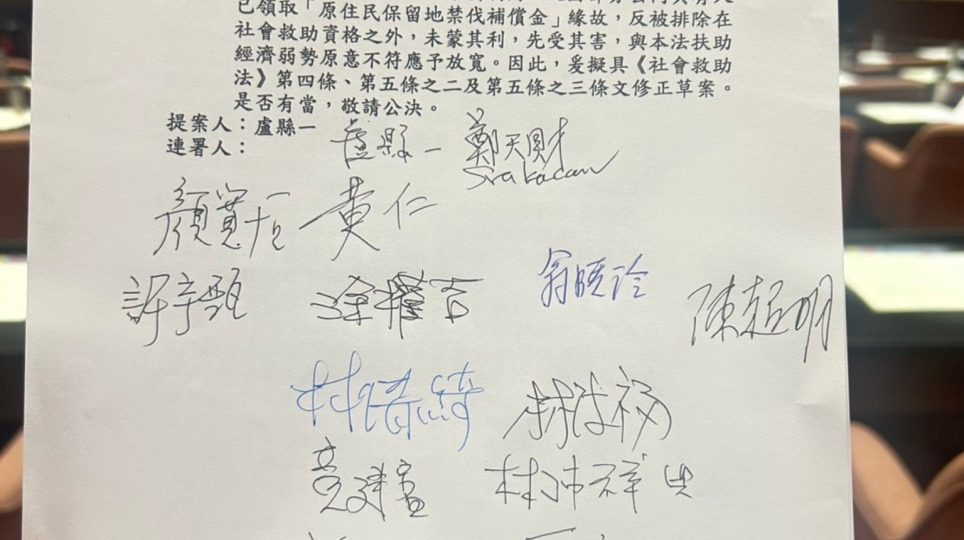 已領取「原住民保留地禁伐補償金」緣故，反被排除在
社會救助資格之外，未蒙其利，先受其害，與本法扶助
經濟弱勢原意不符應予放寬。因此，爰擬具《社會救助
法》第四條、第五條之二及第五條之三條文修正草案。
是否有當，敬請公決。
提案人：盧縣一
連署人：
盧縣一 鄭天財
Sra Kacaw
顏寬恒 黃仁
許宇甄 涂權吉 翁曉玲 陳超明
林倩綺 林德福
黃建賓 林沛祥